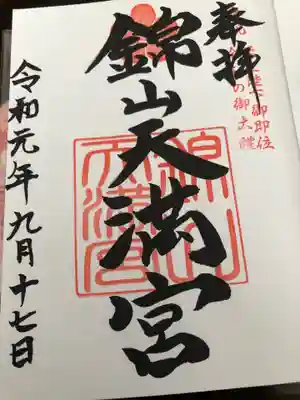 奉拝
御即位
の御大禮
錦山天満宮
錦山
天満宮
令和元年九月十七日